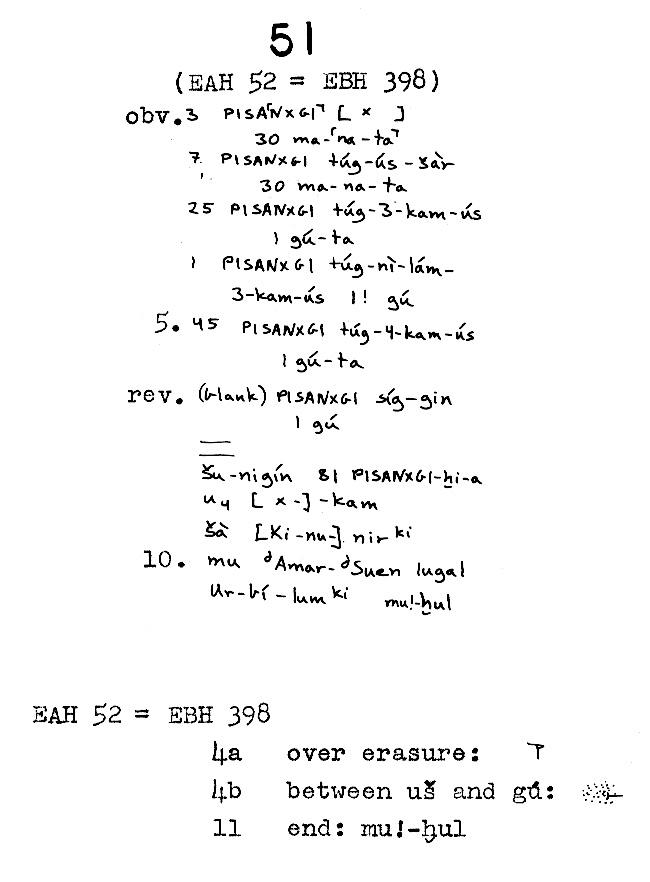 51
(EAH 52 = EBH 398)
obv. 3 PISAN⸢×GI⸣ [ x ]
30 ma-⸢na-ta⸣
7 PISAN×GI túg-ús-šàr
30 ma-na-ta
25 PISAN×GI túg-3-kam-ús
1 gú-ta
1 PISAN×GI túg-nì-lám-
3-kam-ús 1! gú
5. 45 PISAN×GI túg-4-kam-ús
1 gú-ta
rev. (blank) PISAN×GI síg-gin
1 gú
šu-nigín 81 PISAN×GI-ḫi-a
u₄ [ x -]-kam
šà [Ki-nu-] nir ki
10. mu ᵈAmar-ᵈSuen lugal
Ur-bí-lum ki mu!-ḫul
EAH 52 = EBH 398
4a over erasure:
4b between uš and gú:
11 end: mu!-ḫul